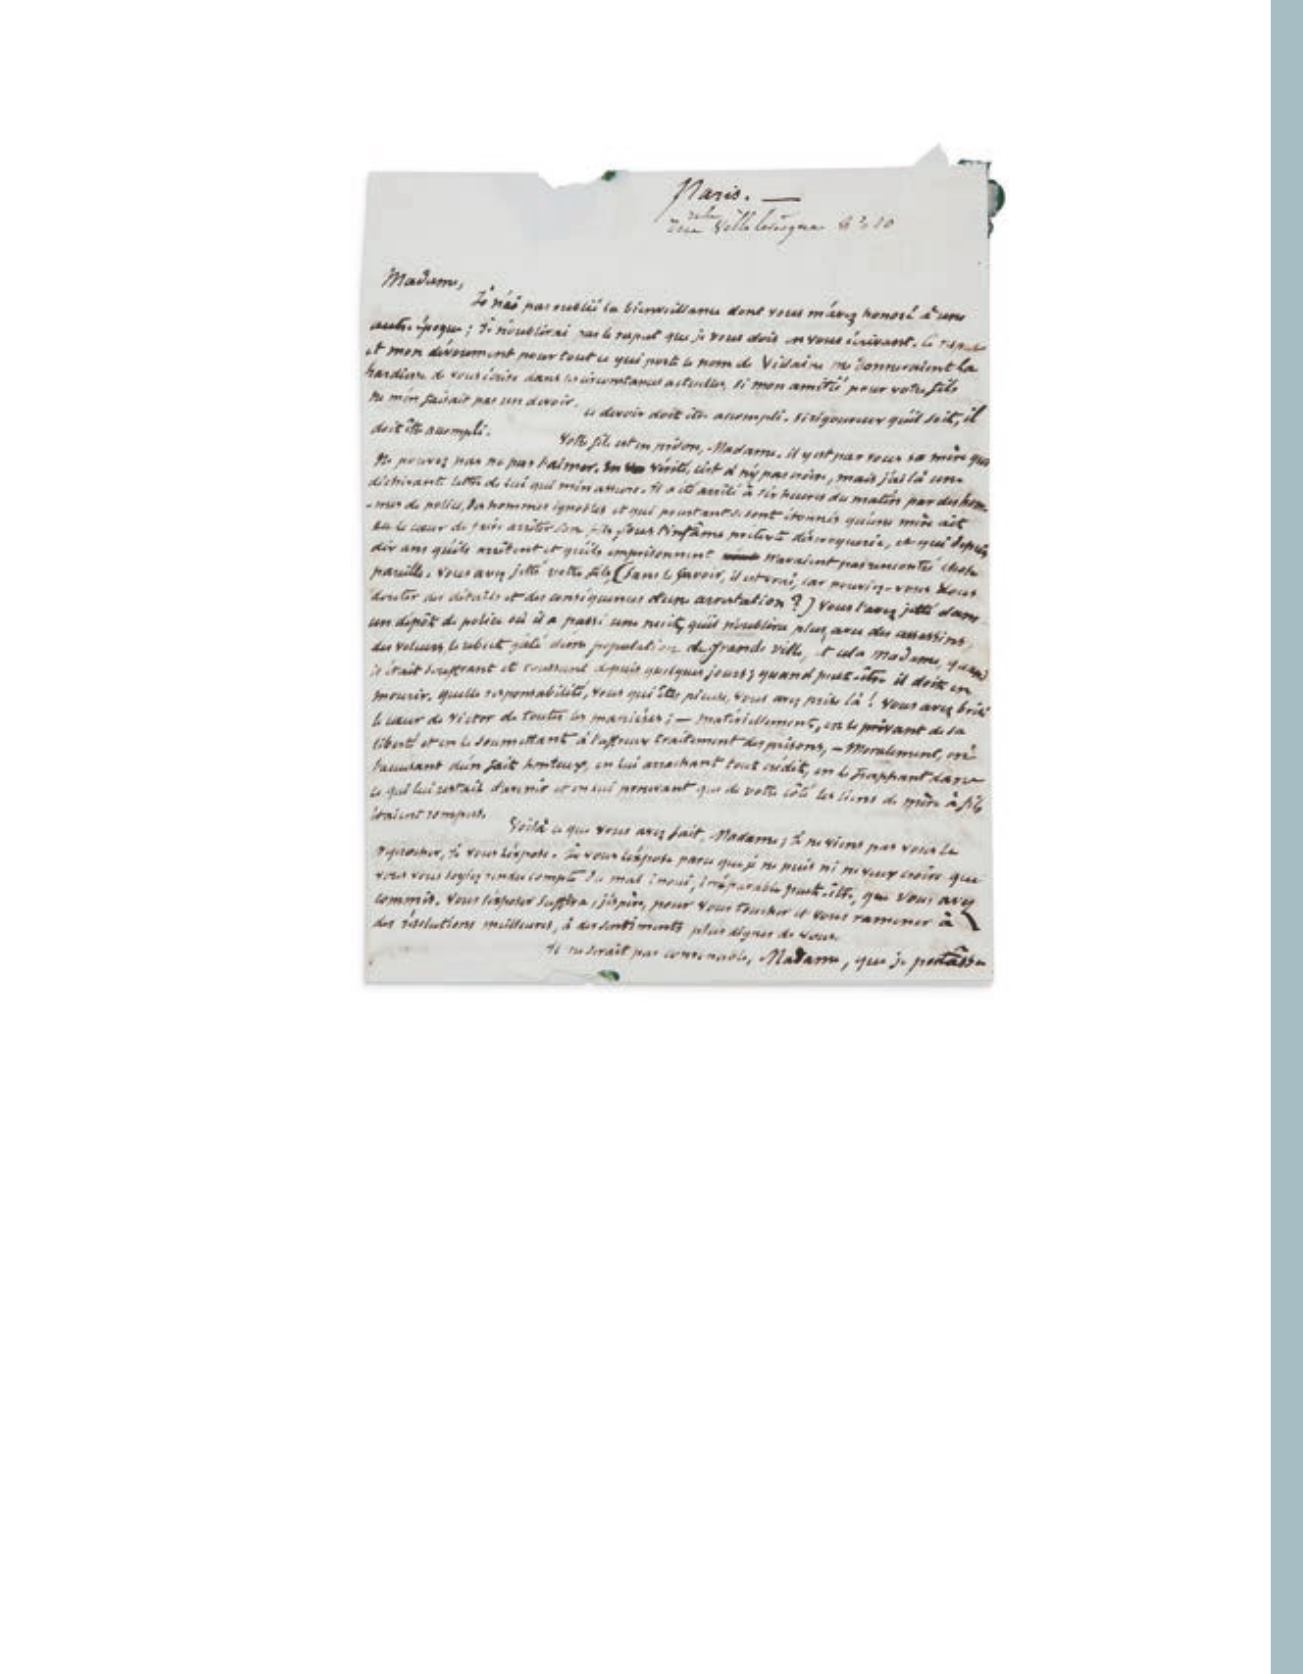 Paris. —
rue de la Ville l'évêque n° 10
Madame,
Je n'ai pas oublié la bienveillance dont vous m'avez honoré à une
autre époque ; Je n'oublirai pas le respect que je vous dois en vous écrivant. Ce respect
et mon dévoument pour tout ce qui porte le nom de me donneraient la
hardiesse de vous écrire dans les circonstances actuelles, si mon amitié pour votre fils
ne m'en faisait pas un devoir.
Ce devoir doit être accompli. Si rigoureux qu'il soit, il
doit être accompli.
Votre fils est en prison, Madame. il y est par vous sa mère qui
ne pouvez pas ne pas l'aimer. En vérité, c'est à n'y pas croire, mais j'ai là une
déchirante lettre de lui qui m'en assure. Il a été arrêté à six heures du matin par des hom
-mes de police, des hommes ignobles et qui pourtant se sont étonnés qu'une mère ait
eu le cœur de faire arrêter son fils sous l'infâme prétexte d'escroquerie, et qui depuis
dix ans qu'ils arrêtent et qu'ils emprisonnent n'avaient pas rencontré chose
pareille. Vous avez jetté votre fils (sans le savoir, il est vrai, car pouviez-vous vous
douter des détails et des conséquences d'une arrestation ?) vous l'avez jetté dans
un dépôt de police où il a passé une nuit, qu'il n'oubliera plus, avec des assassins,
des voleurs, le rebut gâté d'une population de grande ville, et cela Madame, quand
il était souffrant et toussant depuis quelques jours ; quand peut-être il doit en
mourir. Quelle responsabilité, vous qui êtes pieuse, vous avez prise là ! Vous avez brisé
le cœur de Victor de toutes les manières ; — matériellement, en le privant de sa
liberté et en le soumettant à l'affreux traitement des prisons, — Moralement, en
l'accusant d'un fait honteux, en lui arrachant tout crédit, en le frappant dans
ce qui lui restait d'avenir et en lui prouvant que de votre côté les liens de mère à fils
étaient rompus.
Voilà ce que vous avez fait, Madame ; Je ne viens pas vous le
reprocher, Je vous l'expose. Je vous l'expose parce que je ne puis ni ne veux croire que
vous vous soyez rendu compte du mal inouï, irréparable peut-être, que vous avez
commis. Vous l'exposer suffira, j'espère, pour vous toucher et vous ramener à
des résolutions meilleures, à des sentiments plus dignes de vous.
Il ne serait pas convenable, Madame, que je